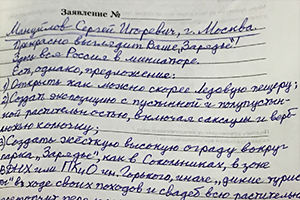 Заявление №
Мануйлов Сергей Игоревич, г. Москва.
Прекрасно выглядит Ваше „Зарядье"!
Здесь вся Россия в миниатюре.
Есть, однако, предложение:
1) Открыть как можно скорее Ледовую пещеру;
2) Создать экспозицию с пустынной и полупустын-
ной растительностью, включая саксаул и верб-
люжью колючку;
3) Создать жёсткую высокую ограду вокруг
парка „Зарядье", как в Сокольниках, в зоне
ВДНХ или ПКиО им. Горького, иначе „дикие турис-
ты" в ходе своих походов и свадеб всю раститель-